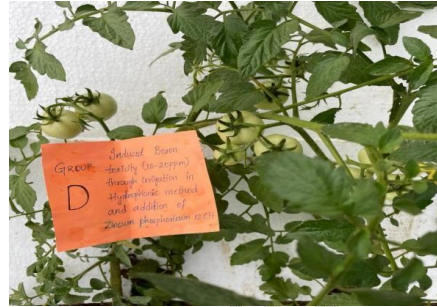 GROUP
D
Induced Boron
toxicity (10-20ppm)
through irrigation in
Hydrophonic method
and addition of
Zincum phosphoricum 12CH